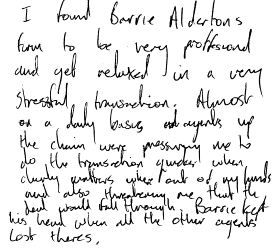 I found Barrie Aldertons
firm to be very proffesional
and yet relaxed in a very
stressful transaction. Almost
on a daily basis agents up
the chain were pressuring me to
do the transaction quicker when
clearly matters where out of my hands
and also threatening me that the
deal would fall through. Barrie kept
his head when all the other agents
lost theres.